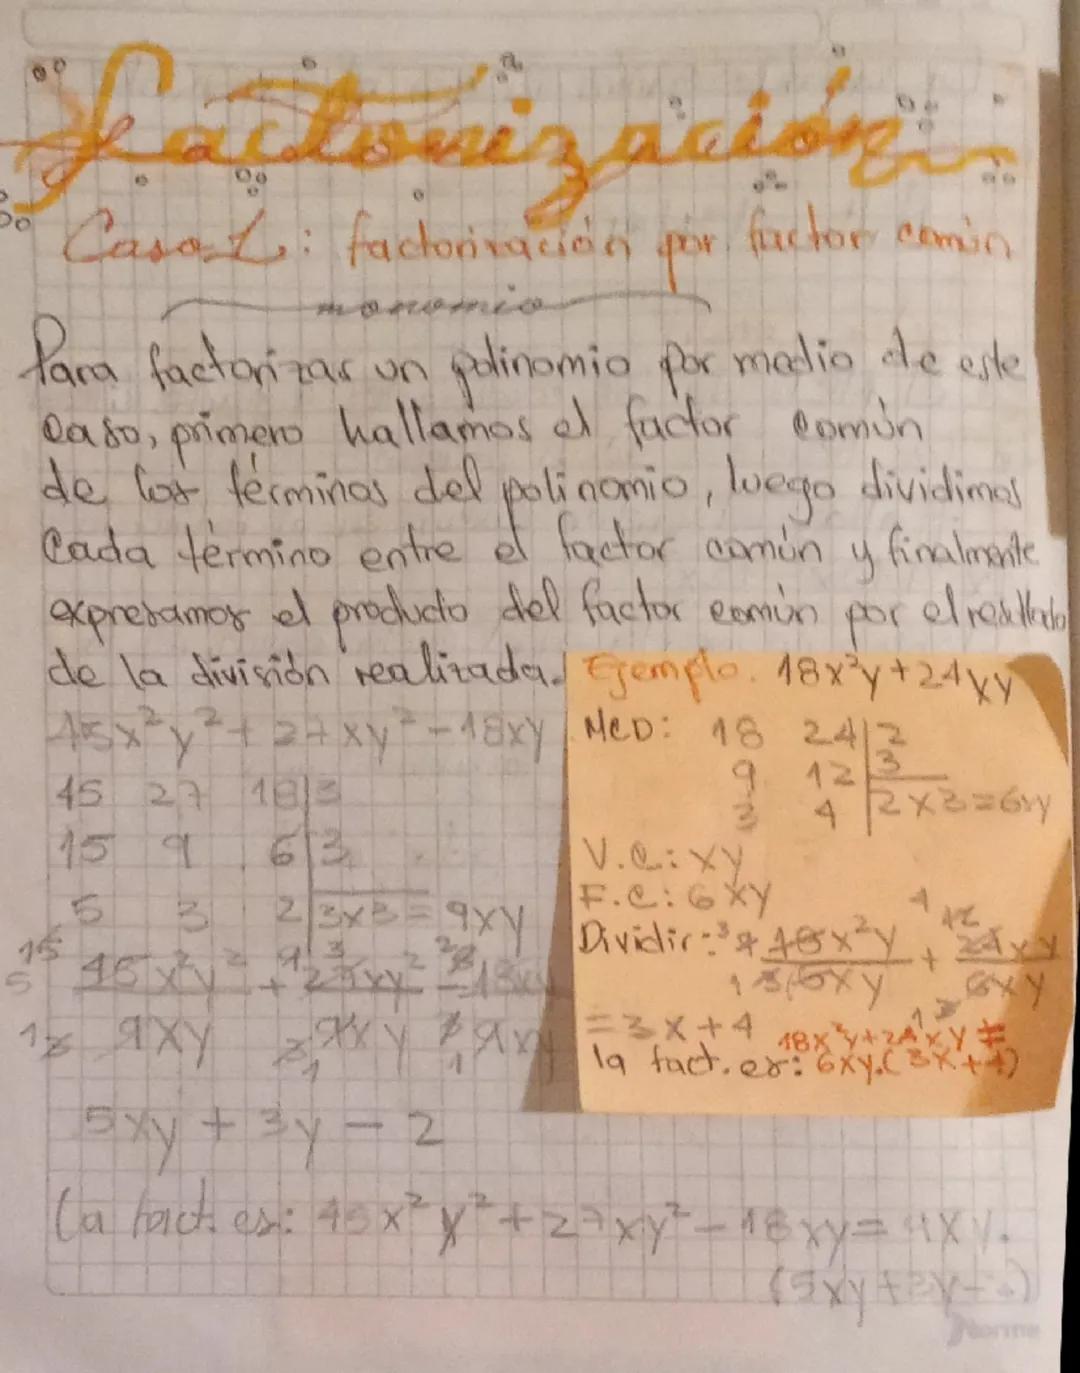 Factorización
Caso 1: factorización por factor común
monomio
Para factorizar un polinomio por medio de este
caso, primero hallamos el factor común
de los términos del polinomio, luego dividimos
Cada término entre el factor común y finalmente
expresamos el producto del factor común por el resultado
de la división realizada.
45x²y² + 27xy² - 18xy
45 27 18|3
15 9 6|3
5 3 2|3x3=9xy
45x²y² + 27xy² - 18xy
9xy 9xy 9xy
5xy + 3y - 2
La fact. es: 45x²y² + 27xy² - 18xy = 9xy.
(5xy+3y-2)
Ejemplo. 18x²y+24xy
MCD: 18 24|2
9 12|3
3 4|2x3=6xy
V.C: xy
F.C: 6xy
Dividir: 18x²y + 24xy
6xy 6xy
=3x+4
18x²y+24xy=
la fact. es: 6xy.(3x+4)
Norma